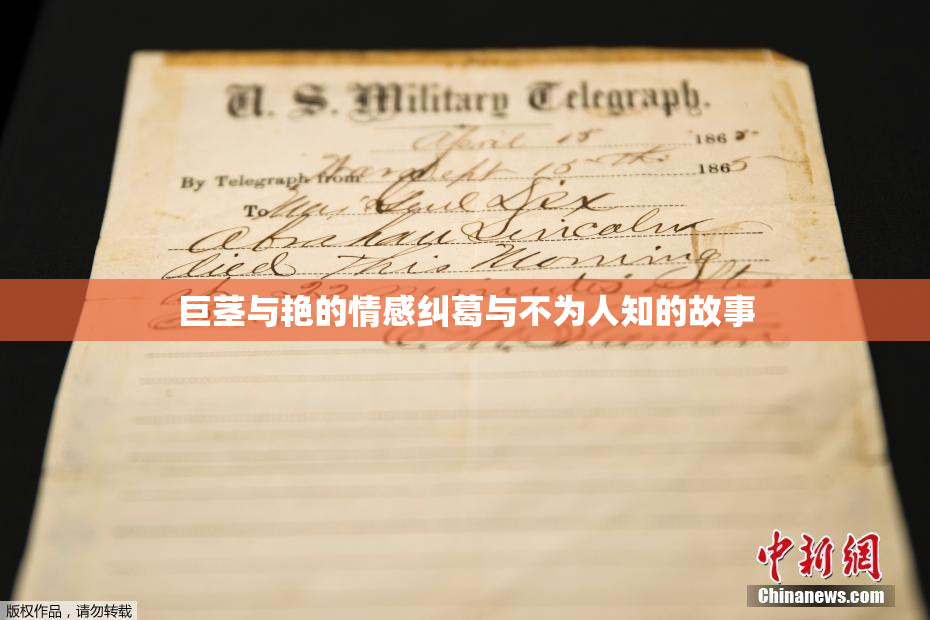 U. S. Military Telegraph.
April 15 1865
By Telegraph from War Dept 15th 1865
To Maj Genl Dix
Abraham Lincoln
died This Morning
at 22 minutes after
巨茎与艳的情感纠葛与不为人知的故事
E. M. Stanton
中新网
Chinanews.com
版权作品，请勿转载